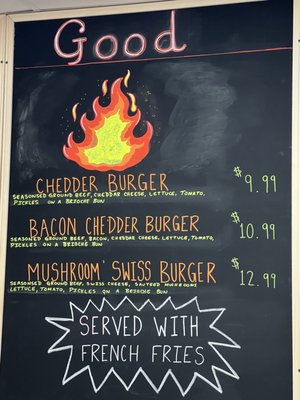 Good
CHEDDER BURGER
$9.99
SEASONSED GROUND BEEF, CHEDDAR CHEESE, LETTUCE, TOMATO,
PICKLES ON A BRIOCHE BUN
BACON CHEDDER BURGER
$10.99
SEASONED GROUND BEEF, BACON, CHEDDAR CHEESE, LETTUCE, TOMATO,
PICKLES ON A BRIOCHE BUN
MUSHROOM SWISS BURGER
$12.99
SEASONED GROUND BEEF, SWISS CHEESE, SAUTEED MUSHROOMS
LETTUCE, TOMATO, PICKLES ON A BRIOCHE BUN
SERVED WITH
FRENCH FRIES